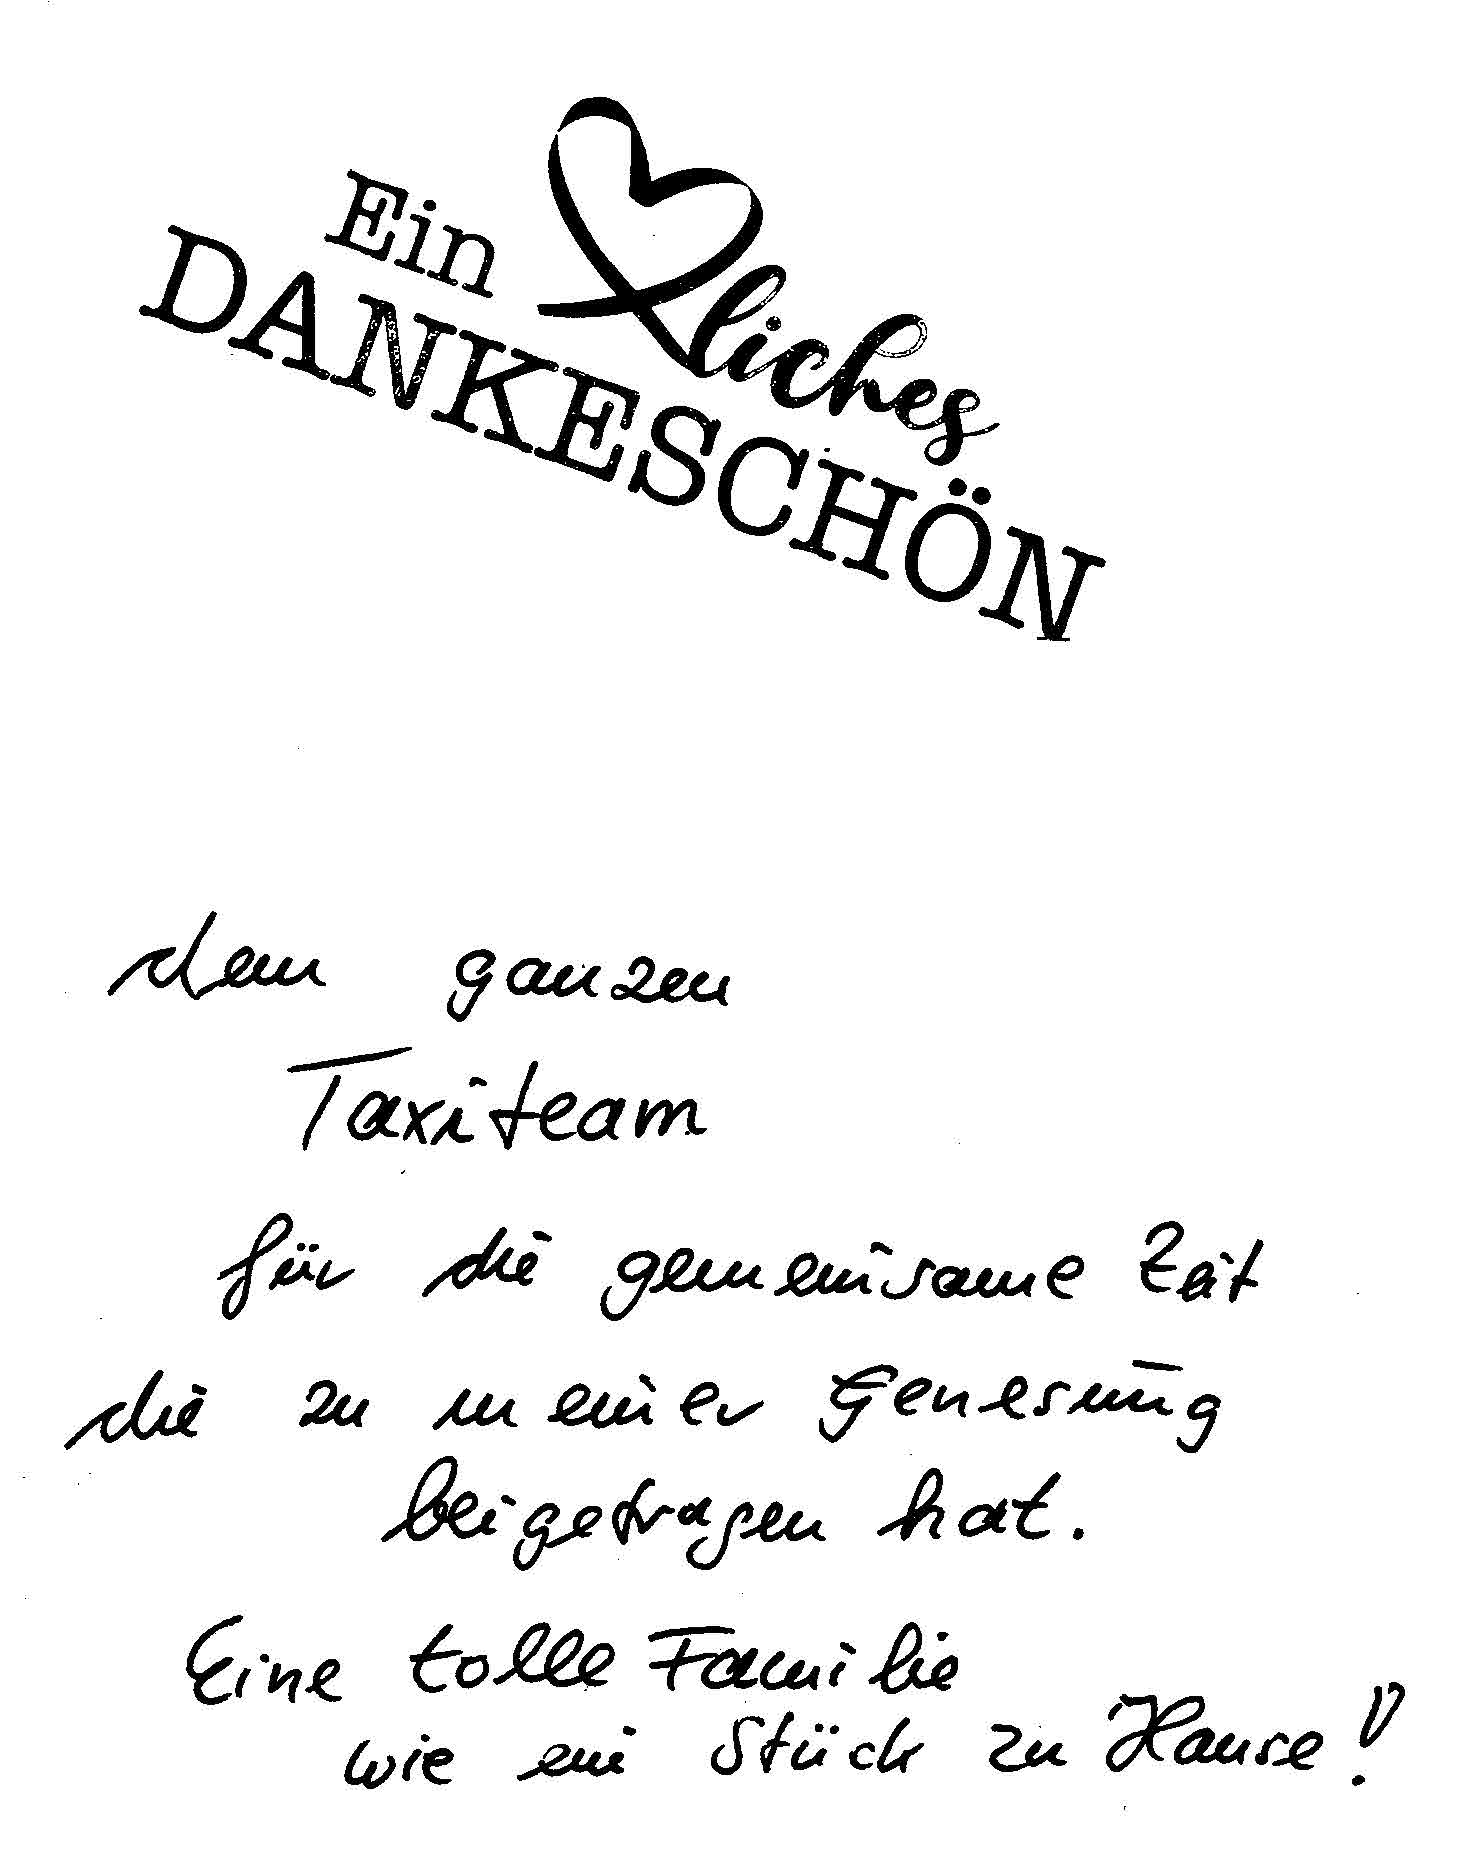 Ein liches
DANKESCHÖN
dem ganzen
Taxiteam
für die gemeinsame Zeit
die zu meiner Genesung
beigetragen hat.
Eine tolle Familie
wie ein Stück zu Hause!